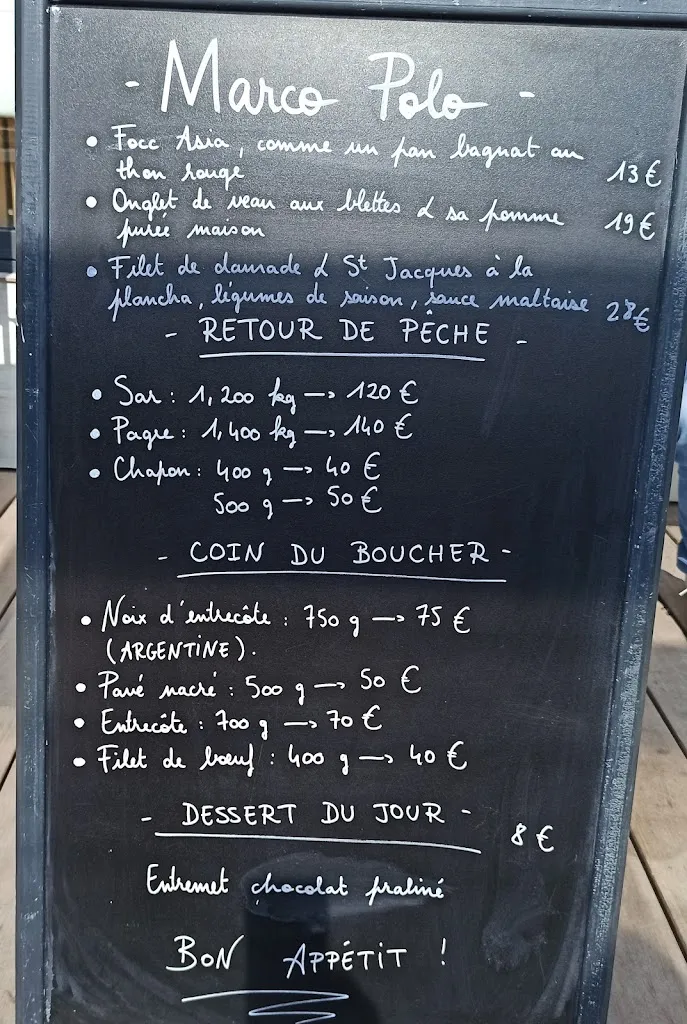 - Marco Polo -
• Focc Asia, comme un pan bagnat au
thon rouge 13 €
• Onglet de veau aux blettes & sa pomme
purée maison 19 €
• Filet de daurade & St Jacques à la
plancha, légumes de saison, sauce maltaise 28 €
- RETOUR DE PÊCHE -
• Sar : 1,200 kg → 120 €
• Pagre : 1,400 kg → 140 €
• Chapon : 400 g → 40 €
500 g → 50 €
- COIN DU BOUCHER -
• Noix d'entrecôte : 750 g → 75 €
(ARGENTINE).
• Pavé nacré : 500 g → 50 €
• Entrecôte : 700 g → 70 €
• Filet de bœuf : 400 g → 40 €
- DESSERT DU JOUR - 8 €
Entremet chocolat praliné
BON APPÉTIT !